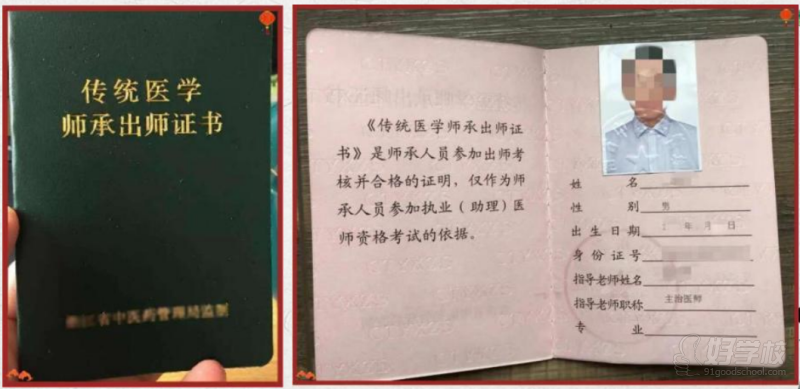 传统医学
师承出师证书
省中医药管理局监制
《传统医学师承出师证
书》是师承人员参加出师考
核并合格的证明，仅作为师
承人员参加执业（助理）医
师资格考试的依据。
姓 名
性 别 男
出生日期 年 月 日
身份证号
指导老师姓名
指导老师职称 主治医师
专 业
好学校
91goodschool.com